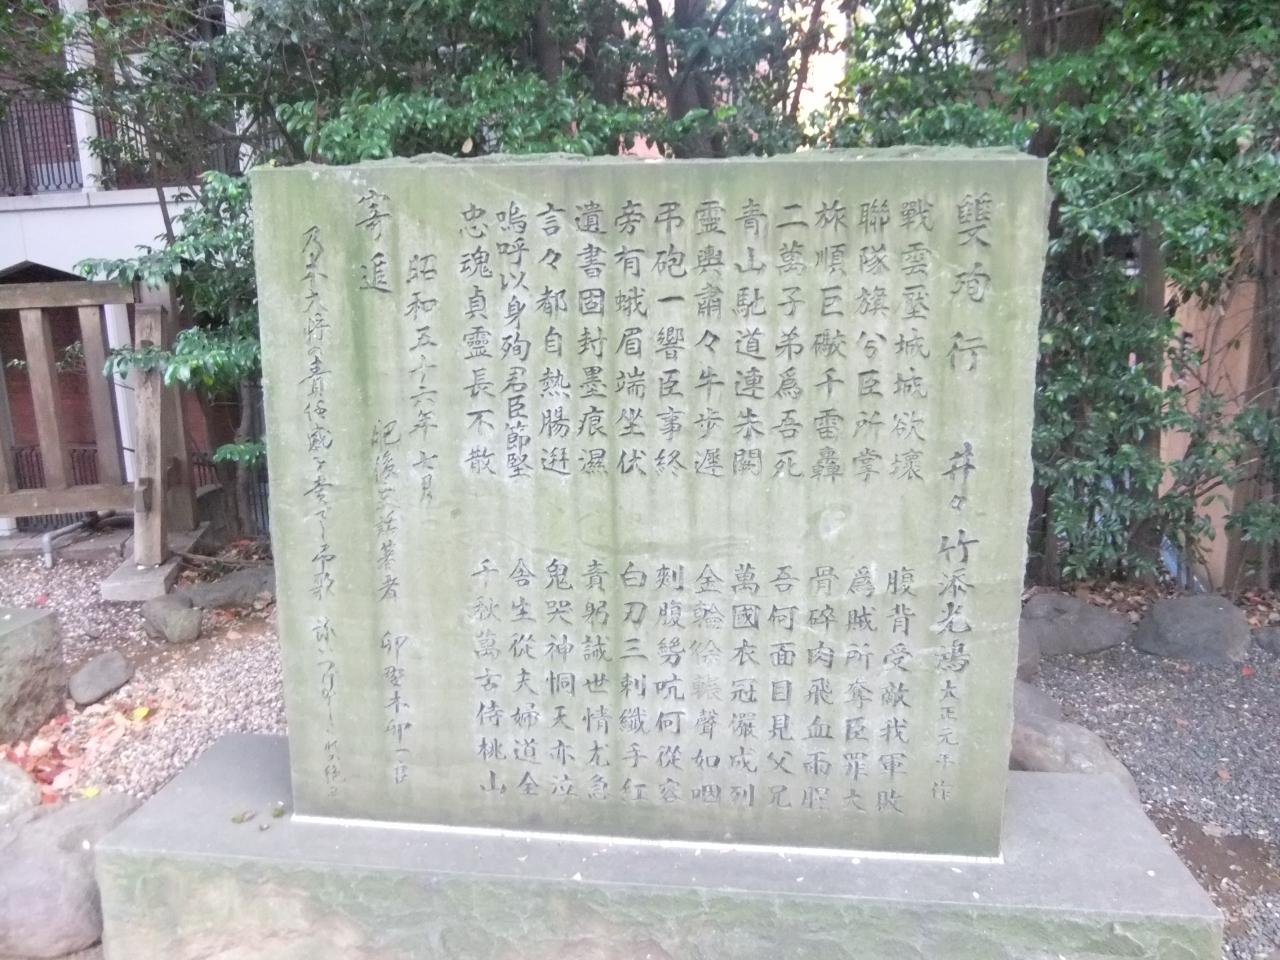 雙殉行 井々竹添光鴻 大正元年作
戰雲壓城城欲壞 腹背受敵我軍敗
聯隊旗兮臣所掌 爲賊所奪臣罪大
旅順巨礮千雷轟 骨碎肉飛血雨腥
二萬子弟爲吾死 吾何面目見父兄
青山馳道連朱闕 萬國衣冠儼成列
靈輿肅々牛步遲 金輪徐輾聲如咽
弔砲一響臣事終 刺腹勢吭何從容
旁有蛾眉端坐伏 白刃三刺纖手紅
遺書固封墨痕濕 責躬誡世情尤急
言々都自熱腸迸 鬼哭神恫天亦泣
嗚呼以身殉君臣節堅 舍生從夫婦道全
忠魂貞靈長不散 千秋萬古侍桃山
昭和五十六年七月
肥後史話著者 卯野木卯一良
寄進
乃木大將の責任感を